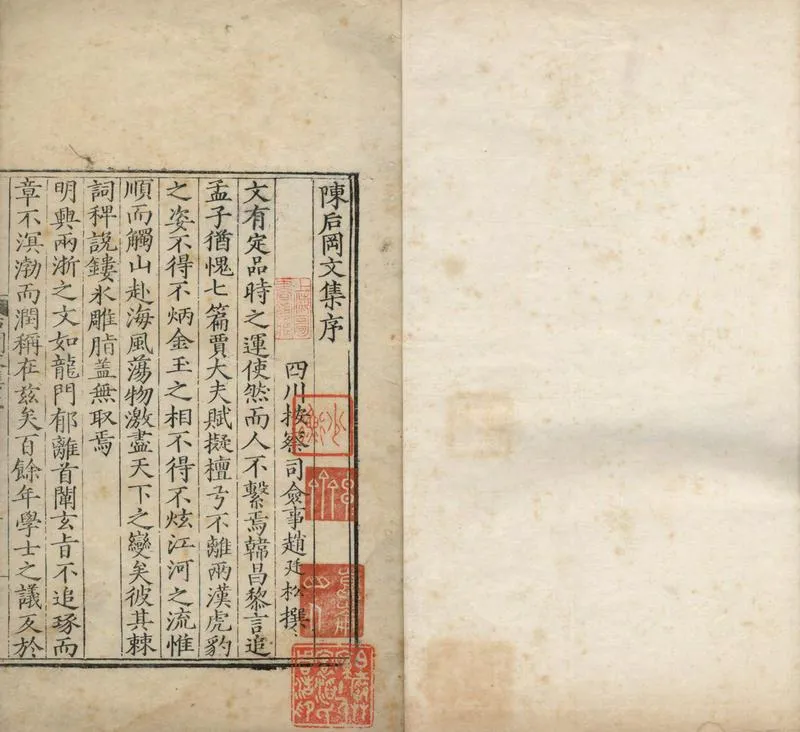 陳后岡文集序
四川按察司僉事趙廷松撰
文有定品時之運使然而人不繫焉韓昌黎言追
孟子猶愧七篇賈大夫賦擬檀弓不離兩漢虎豹
之姿不得不炳金玉之相不得不炫江河之流惟
順而觸山赴海風蕩物激盡天下之變矣彼其棘
詞稗說鏤氷雕脂盖無取焉
明興兩浙之文如龍門郁離首闡玄旨不追琢而
章不溟渤而潤稱在玆矣百餘年學士之議及於